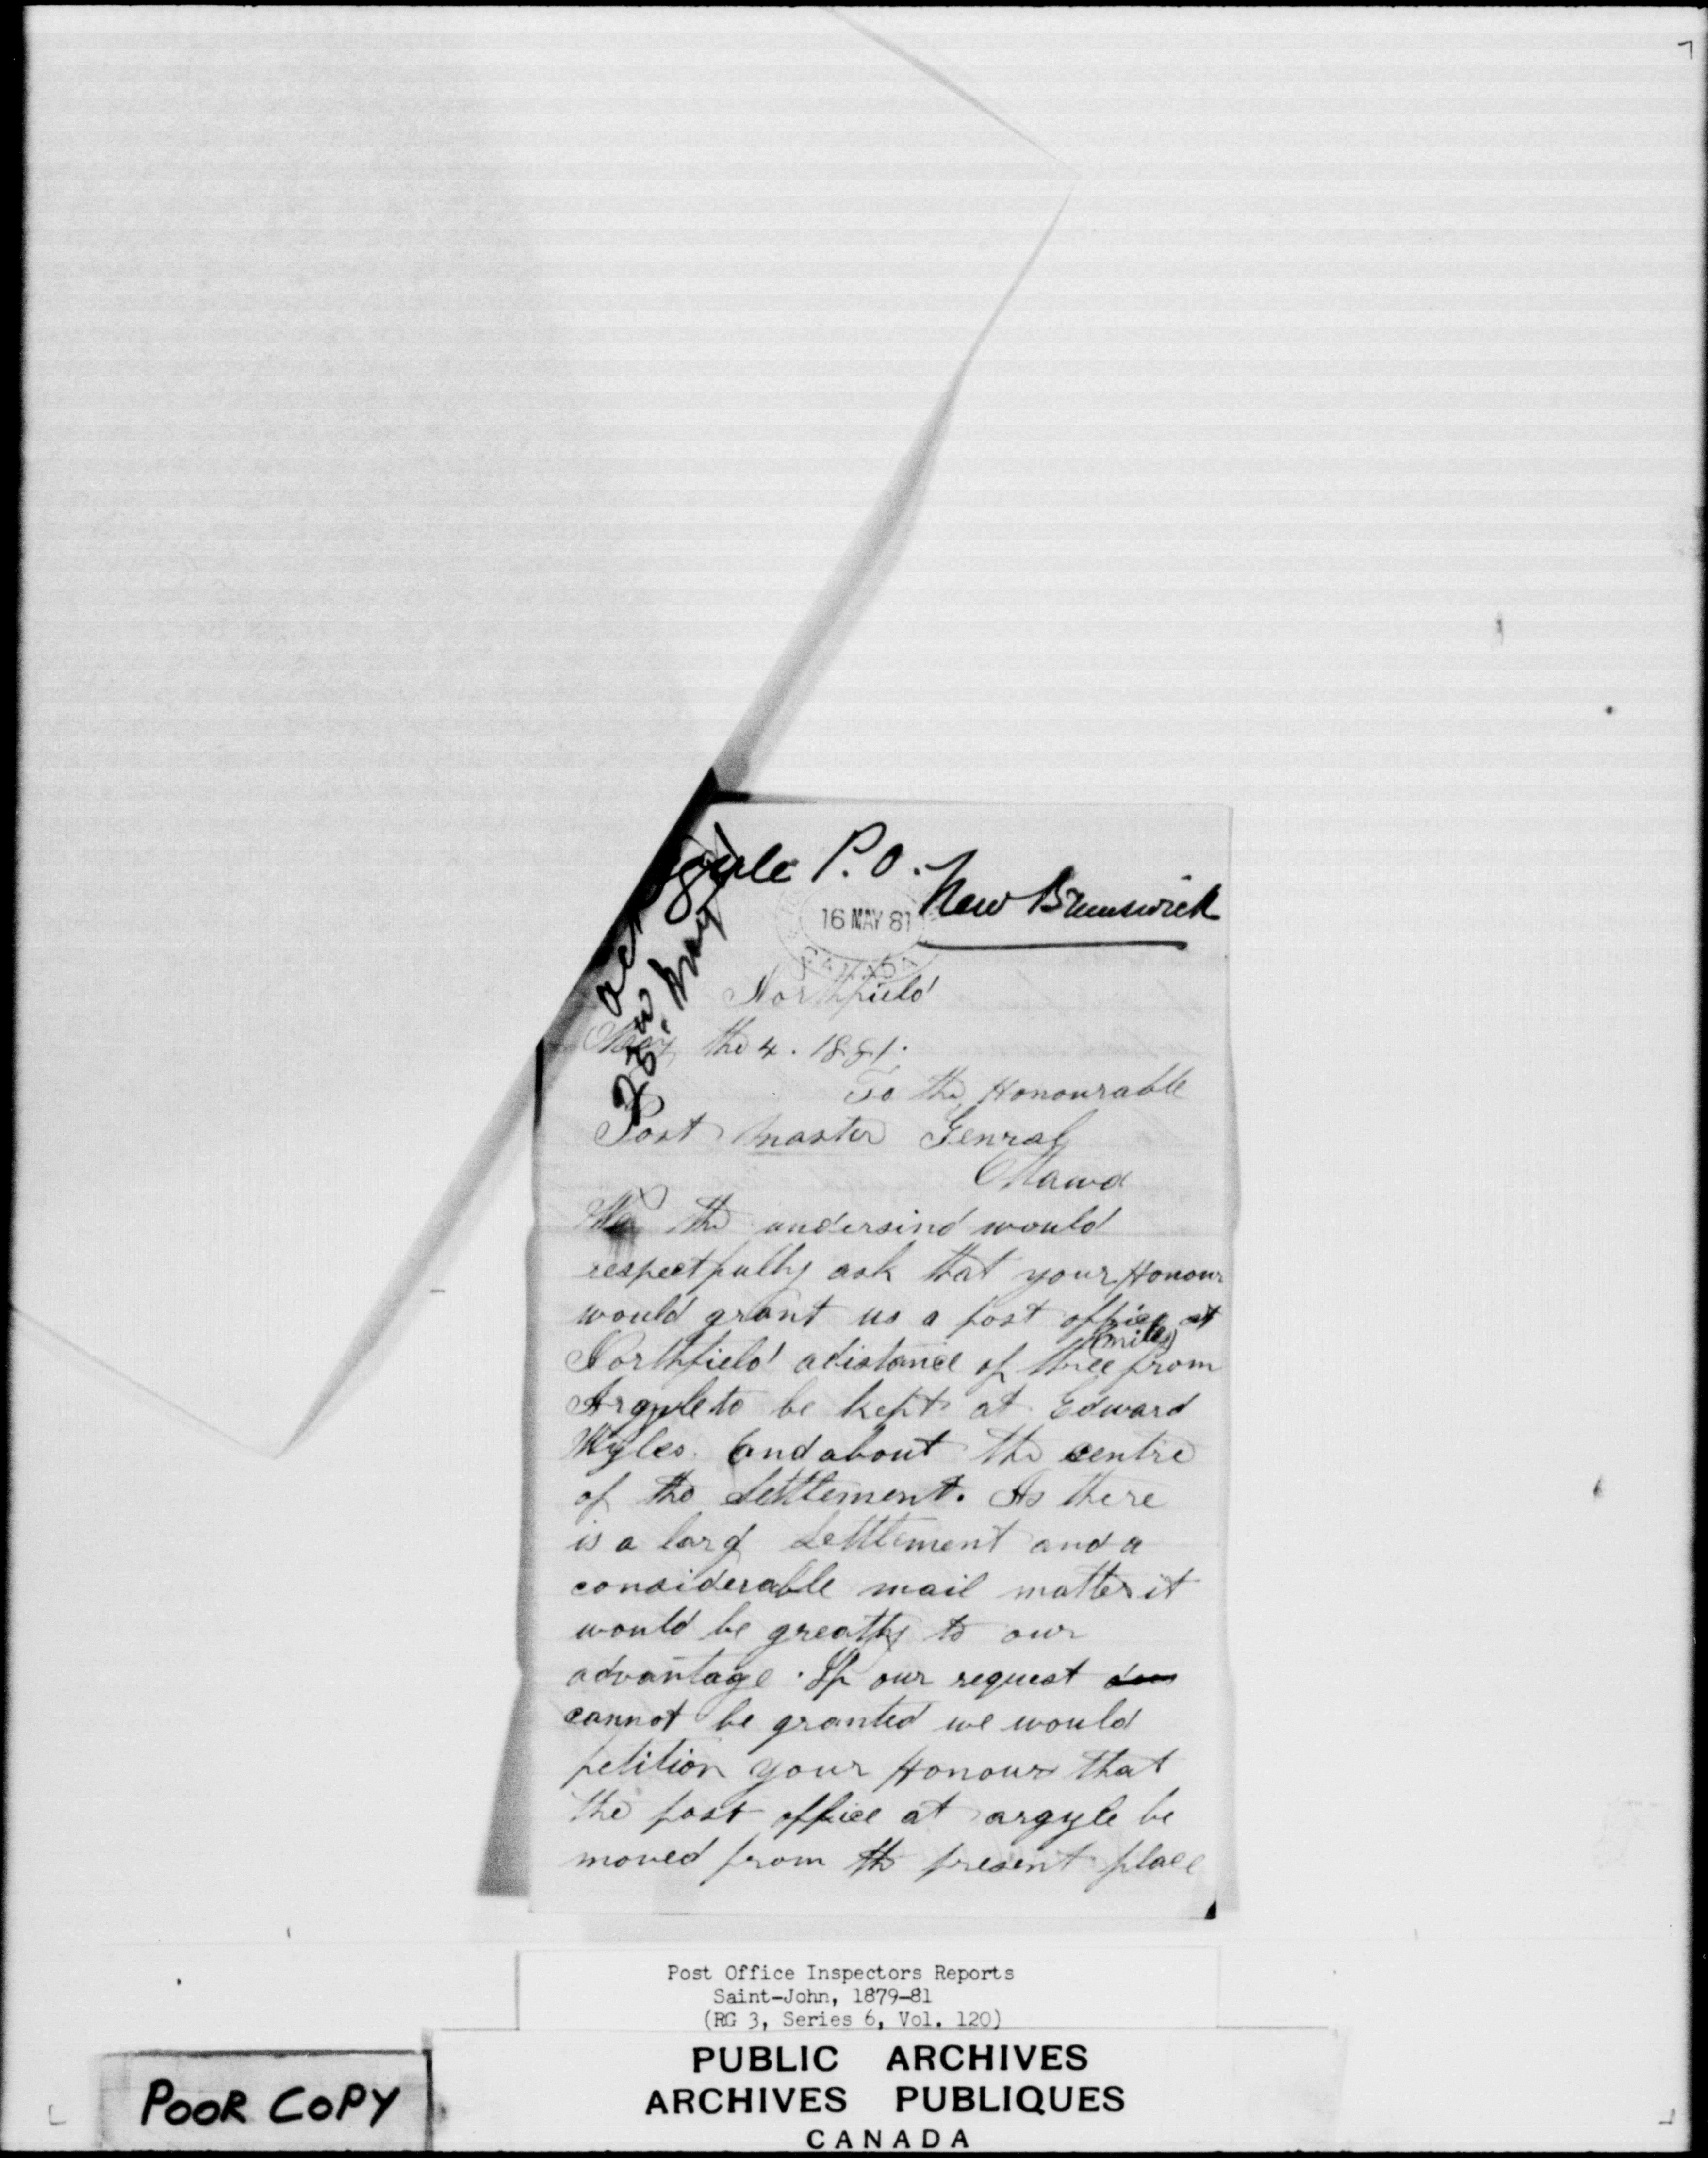 gyle P.O. New Brunswick
16 MAY 81
CANADA
Northfield
May the 4. 1881.
To the Honourable
Post master Genral
Ottawa
We the undersind would
respectfully ask that your Honour
would grant us a post office at
Northfield adistance of three (miles) from
Argyle to be kept at Edward
Myles. and about the centre
of the settlement. As there
is a larg settlement and a
considerable mail matter it
would be greatly to our
advantage. If our request
cannot be granted we would
petition your Honour that
the post office at argyle be
moved from the present place
Post Office Inspectors Reports
Saint-John, 1879-81
(RG 3, Series 6, Vol. 120)
PUBLIC ARCHIVES
ARCHIVES PUBLIQUES
CANADA
POOR COPY